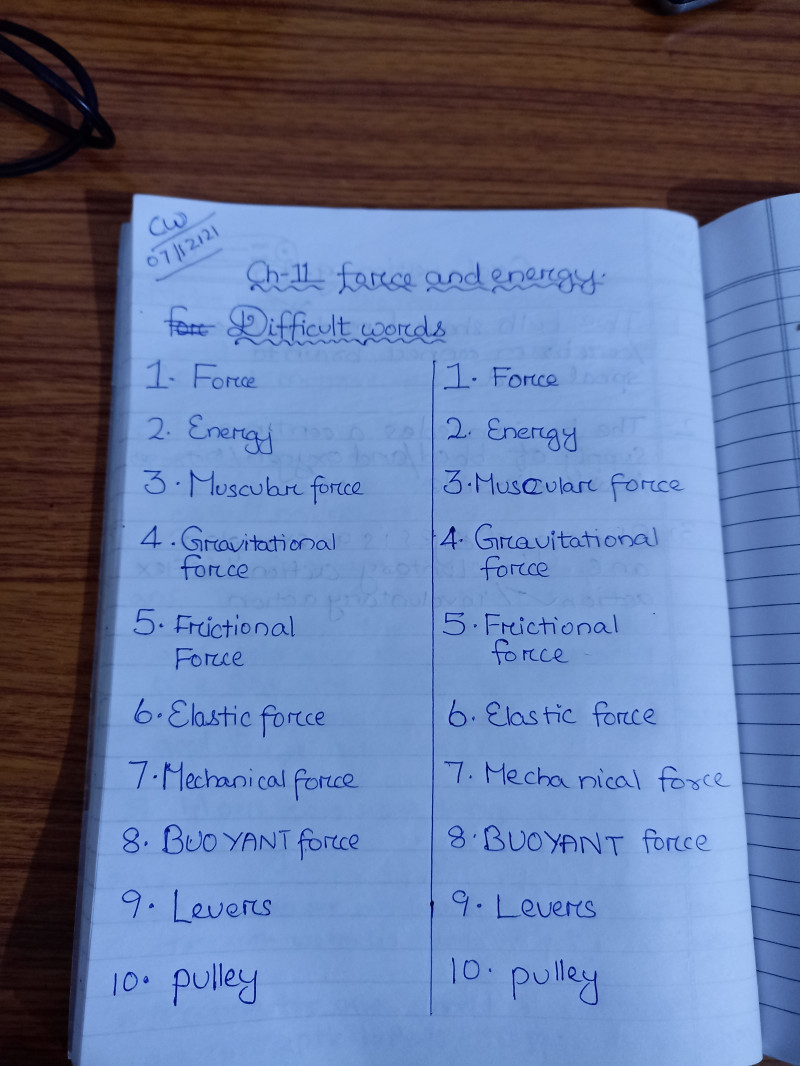 CW
07/12/21
Ch-11 force and energy.
for Difficult words
1. Force
2. Energy
3. Muscular force
4. Gravitational
force
5. Frictional
Force
6. Elastic force
7. Mechanical force
8. BUOYANT force
9. Levers
10. pulley
1. Force
2. Energy
3. Muscular force
4. Gravitational
force
5. Frictional
force
6. Elastic force
7. Mechanical force
8. BUOYANT force
9. Levers
10. pulley